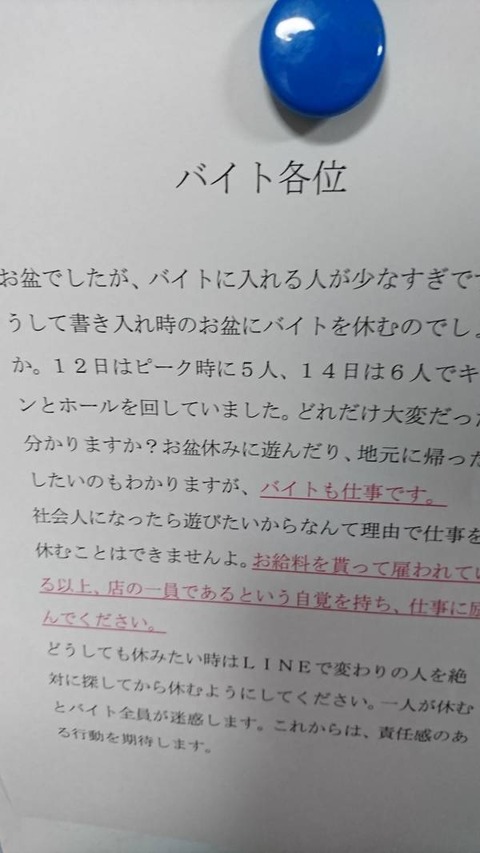 バイト各位
お盆でしたが、バイトに入れる人が少なすぎで
うして書き入れ時のお盆にバイトを休むのでし
か。１２日はピーク時に５人、１４日は６人でキ
ンとホールを回していました。どれだけ大変だっ
分かりますか？お盆休みに遊んだり、地元に帰った
したいのもわかりますが、バイトも仕事です。
社会人になったら遊びたいからなんて理由で仕事を
休むことはできませんよ。お給料を貰って雇われてい
る以上、店の一員であるという自覚を持ち、仕事に励
んでください。
どうしても休みたい時はＬＩＮＥで変わりの人を絶
対に探してから休むようにしてください。一人が休む
とバイト全員が迷惑します。これからは、責任感のあ
る行動を期待します。